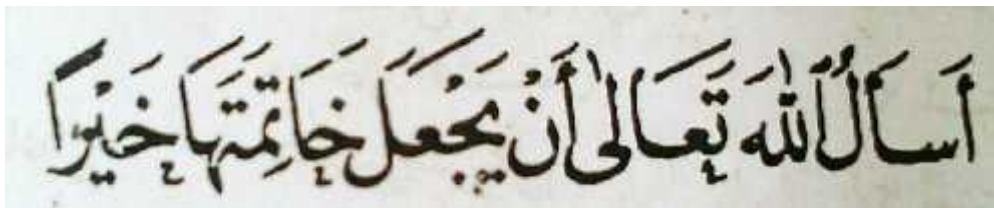 أَسْأَلُ ٱللّٰهَ تَعَالىٰ أَنْ يَجْعَلَ خَاتِمَتَهَا خَيْرًا